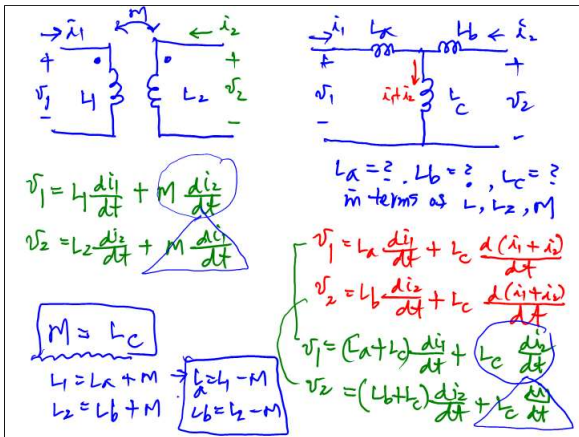 i₁ M i₂
+ + 
v₁ L₁ L₂ v₂
- -
v₁ = L₁ di₁/dt + M di₂/dt
v₂ = L₂ di₂/dt + M di₁/dt
M = Lc
L₁ = La + M → La = L₁ - M
L₂ = Lb + M Lb = L₂ - M
i₁ La Lb i₂
+ +
v₁ i₁+i₂ Lc v₂
- -
La = ? . Lb = ? , Lc = ?
in terms of L, L₂, M
v₁ = La di₁/dt + Lc d(i₁+i₂)/dt
v₂ = Lb di₂/dt + Lc d(i₁+i₂)/dt
v₁ = (La+Lc) di₁/dt + Lc di₂/dt
v₂ = (Lb+Lc) di₂/dt + Lc di₁/dt